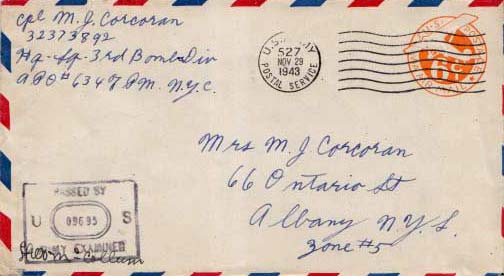 Cpl M. J. Corcoran
32373892
Hq-Sq-3rd Bomb Div
APO #634 % PM. N.Y.C.
U.S. ARMY
527
NOV 29
1943
POSTAL SERVICE
6¢
AIR MAIL
Mrs M. J. Corcoran
66 Ontario St
Albany N.Y.
Zone #5
PASSED BY
U 09695 S
ARMY EXAMINER